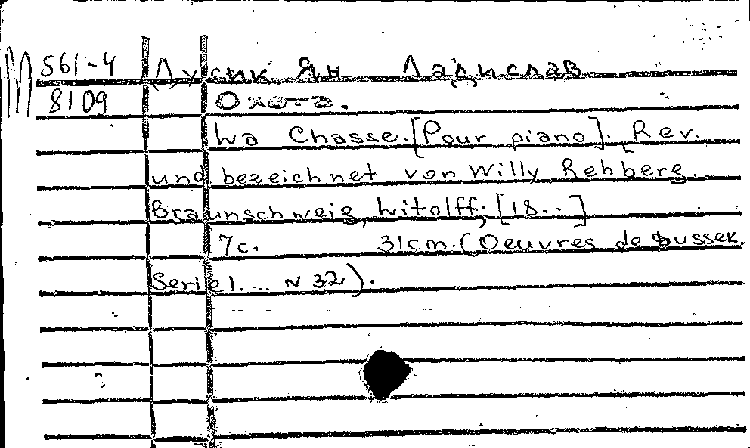 М 561-4 Дусик Ян Ладислав
8109 Охота.
La Chasse. [Pour piano]. Rev.
und bezeichnet von Willy Rehberg.
Braunschweig, Litolff, [18..]
7с. 31cm. (Oeuvres de Dussek
Serie I. ... N 32).